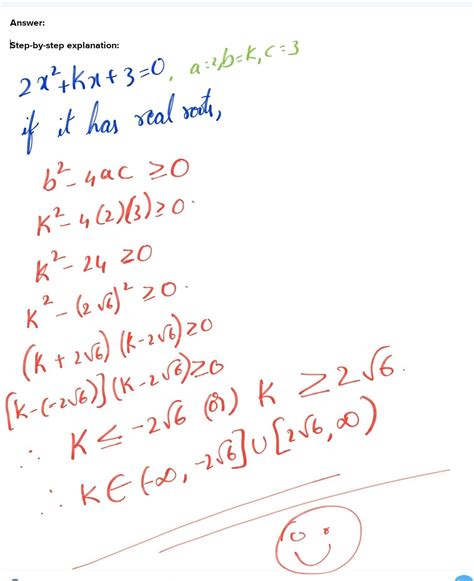 Answer:
Step-by-step explanation:
2x²+kx+3=0, a=2, b=k, c=3
if it has real roots,
b²-4ac ≥0
k²-4(2)(3)≥0.
k²-24 ≥0
k²-(2√6)² ≥0.
(k+2√6)(k-2√6)≥0
[k-(-2√6)](k-2√6)≥0
∴ k≤-2√6 (or) k ≥2√6.
∴ k∈(-∞,-2√6]∪[2√6,∞)